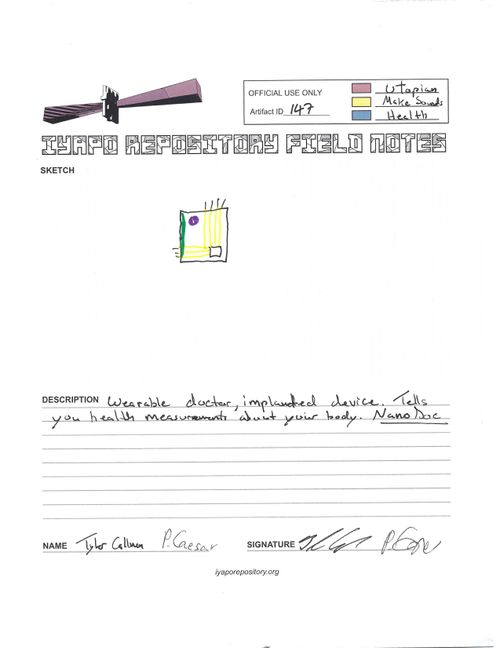 OFFICIAL USE ONLY
Artifact ID 147
Utopian
Make Sounds
Health
IYAPO REPOSITORY FIELD NOTES
SKETCH
DESCRIPTION Wearable doctor, implanded device. Tells
you health measurements about your body. NanoDoc
NAME Tyler P. Caesar
SIGNATURE
iyaporepository.org